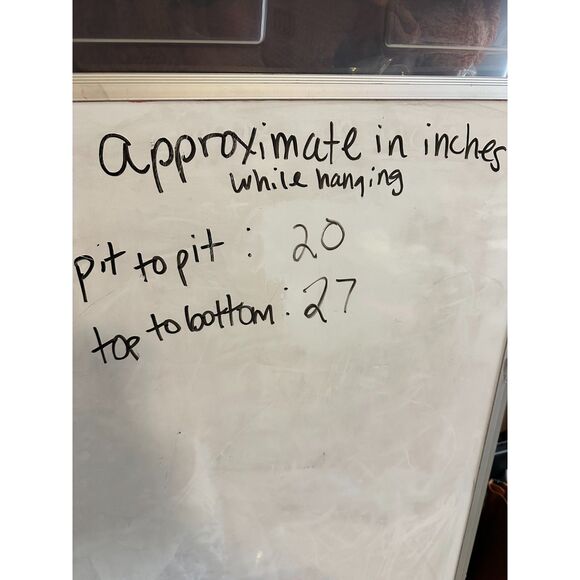 approximate in inches
while hanging
pit to pit : 20
top to bottom : 27